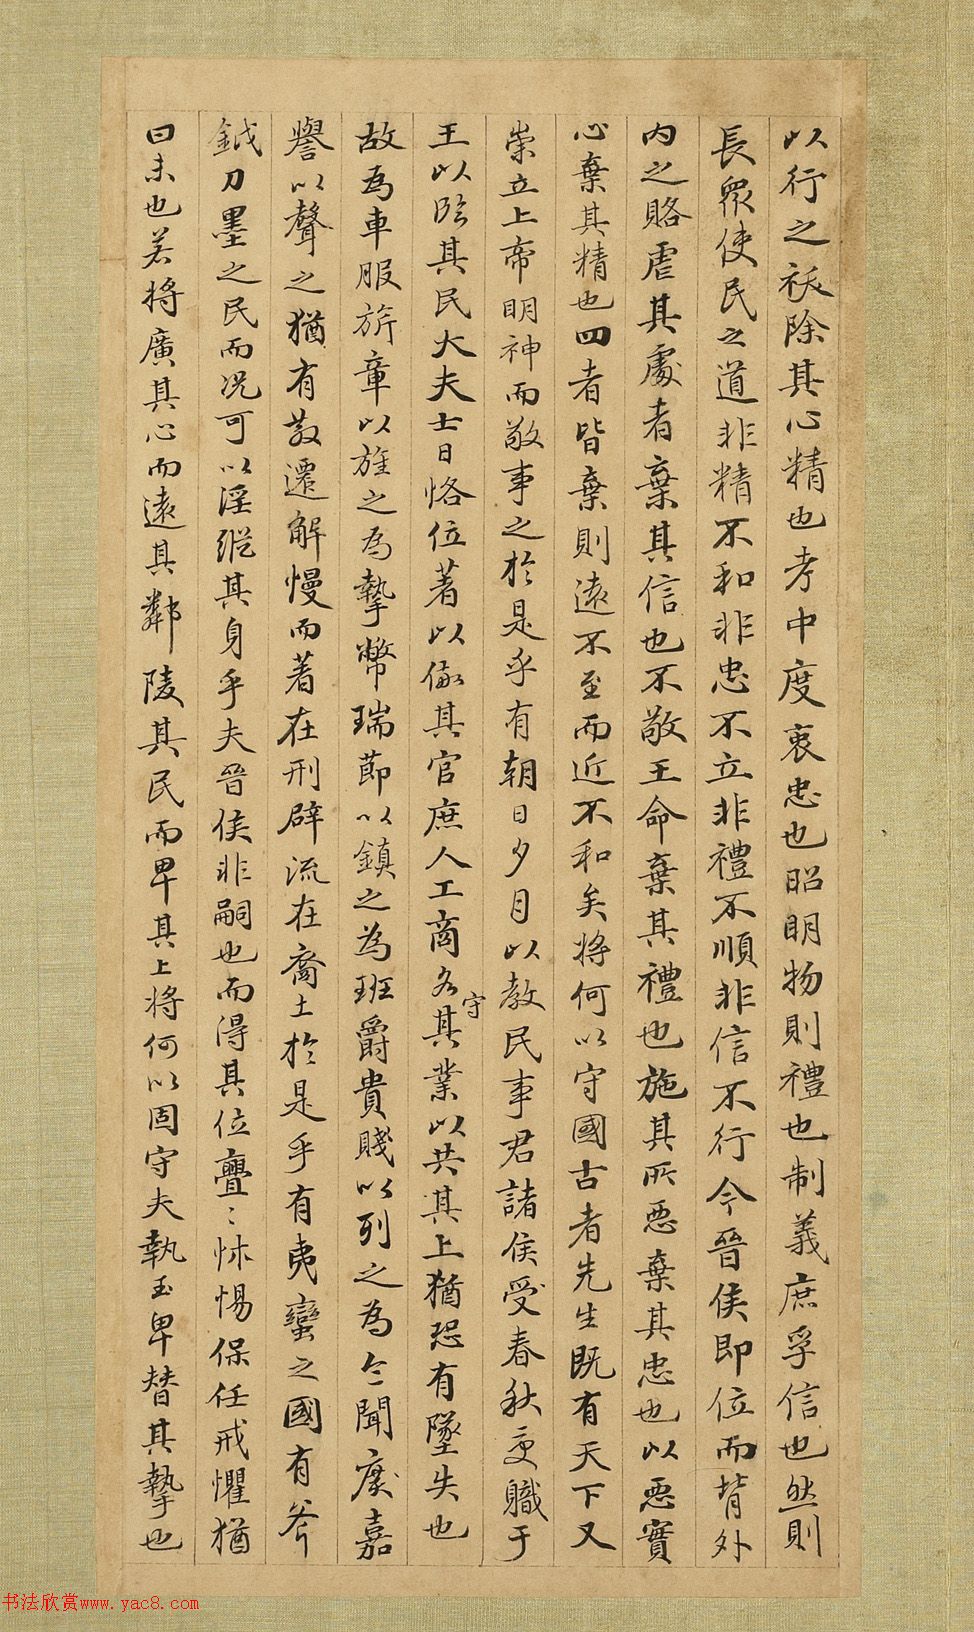 以行之祓除其心精也考中度衷忠也昭明物則禮也制義庶孚信也然則
長眾使民之道非精不和非忠不立非禮不順非信不行今晉侯即位而背外
内之賂虐其處者棄其信也不敬王命棄其禮也施其所惡棄其忠也以惡實
心棄其精也四者皆棄則遠不至而近不和矣將何以守國古者先生既有天下又
崇立上帝明神而敬事之於是乎有朝日夕月以教民事君諸侯受春秋受職于
王以臨其民大夫士日恪位著以儆其官庶人工商各守其業以共其上猶恐有墜失也
故為車服旂章以旌之為摯幣瑞節以鎮之為班爵貴賤以列之為令聞廣嘉
譽以聲之猶有散遷解慢而著在刑辟流在裔土於是乎有夷蠻之國有斧
鉞刀墨之民而況可以淫縱其身乎夫晉侯非嗣也而得其位亹〻怵惕保任戒懼猶
曰未也若將廣其心而遠其鄰陵其民而卑其上將何以固守夫執玉卑替其摯也
书法欣赏www.yac8.com